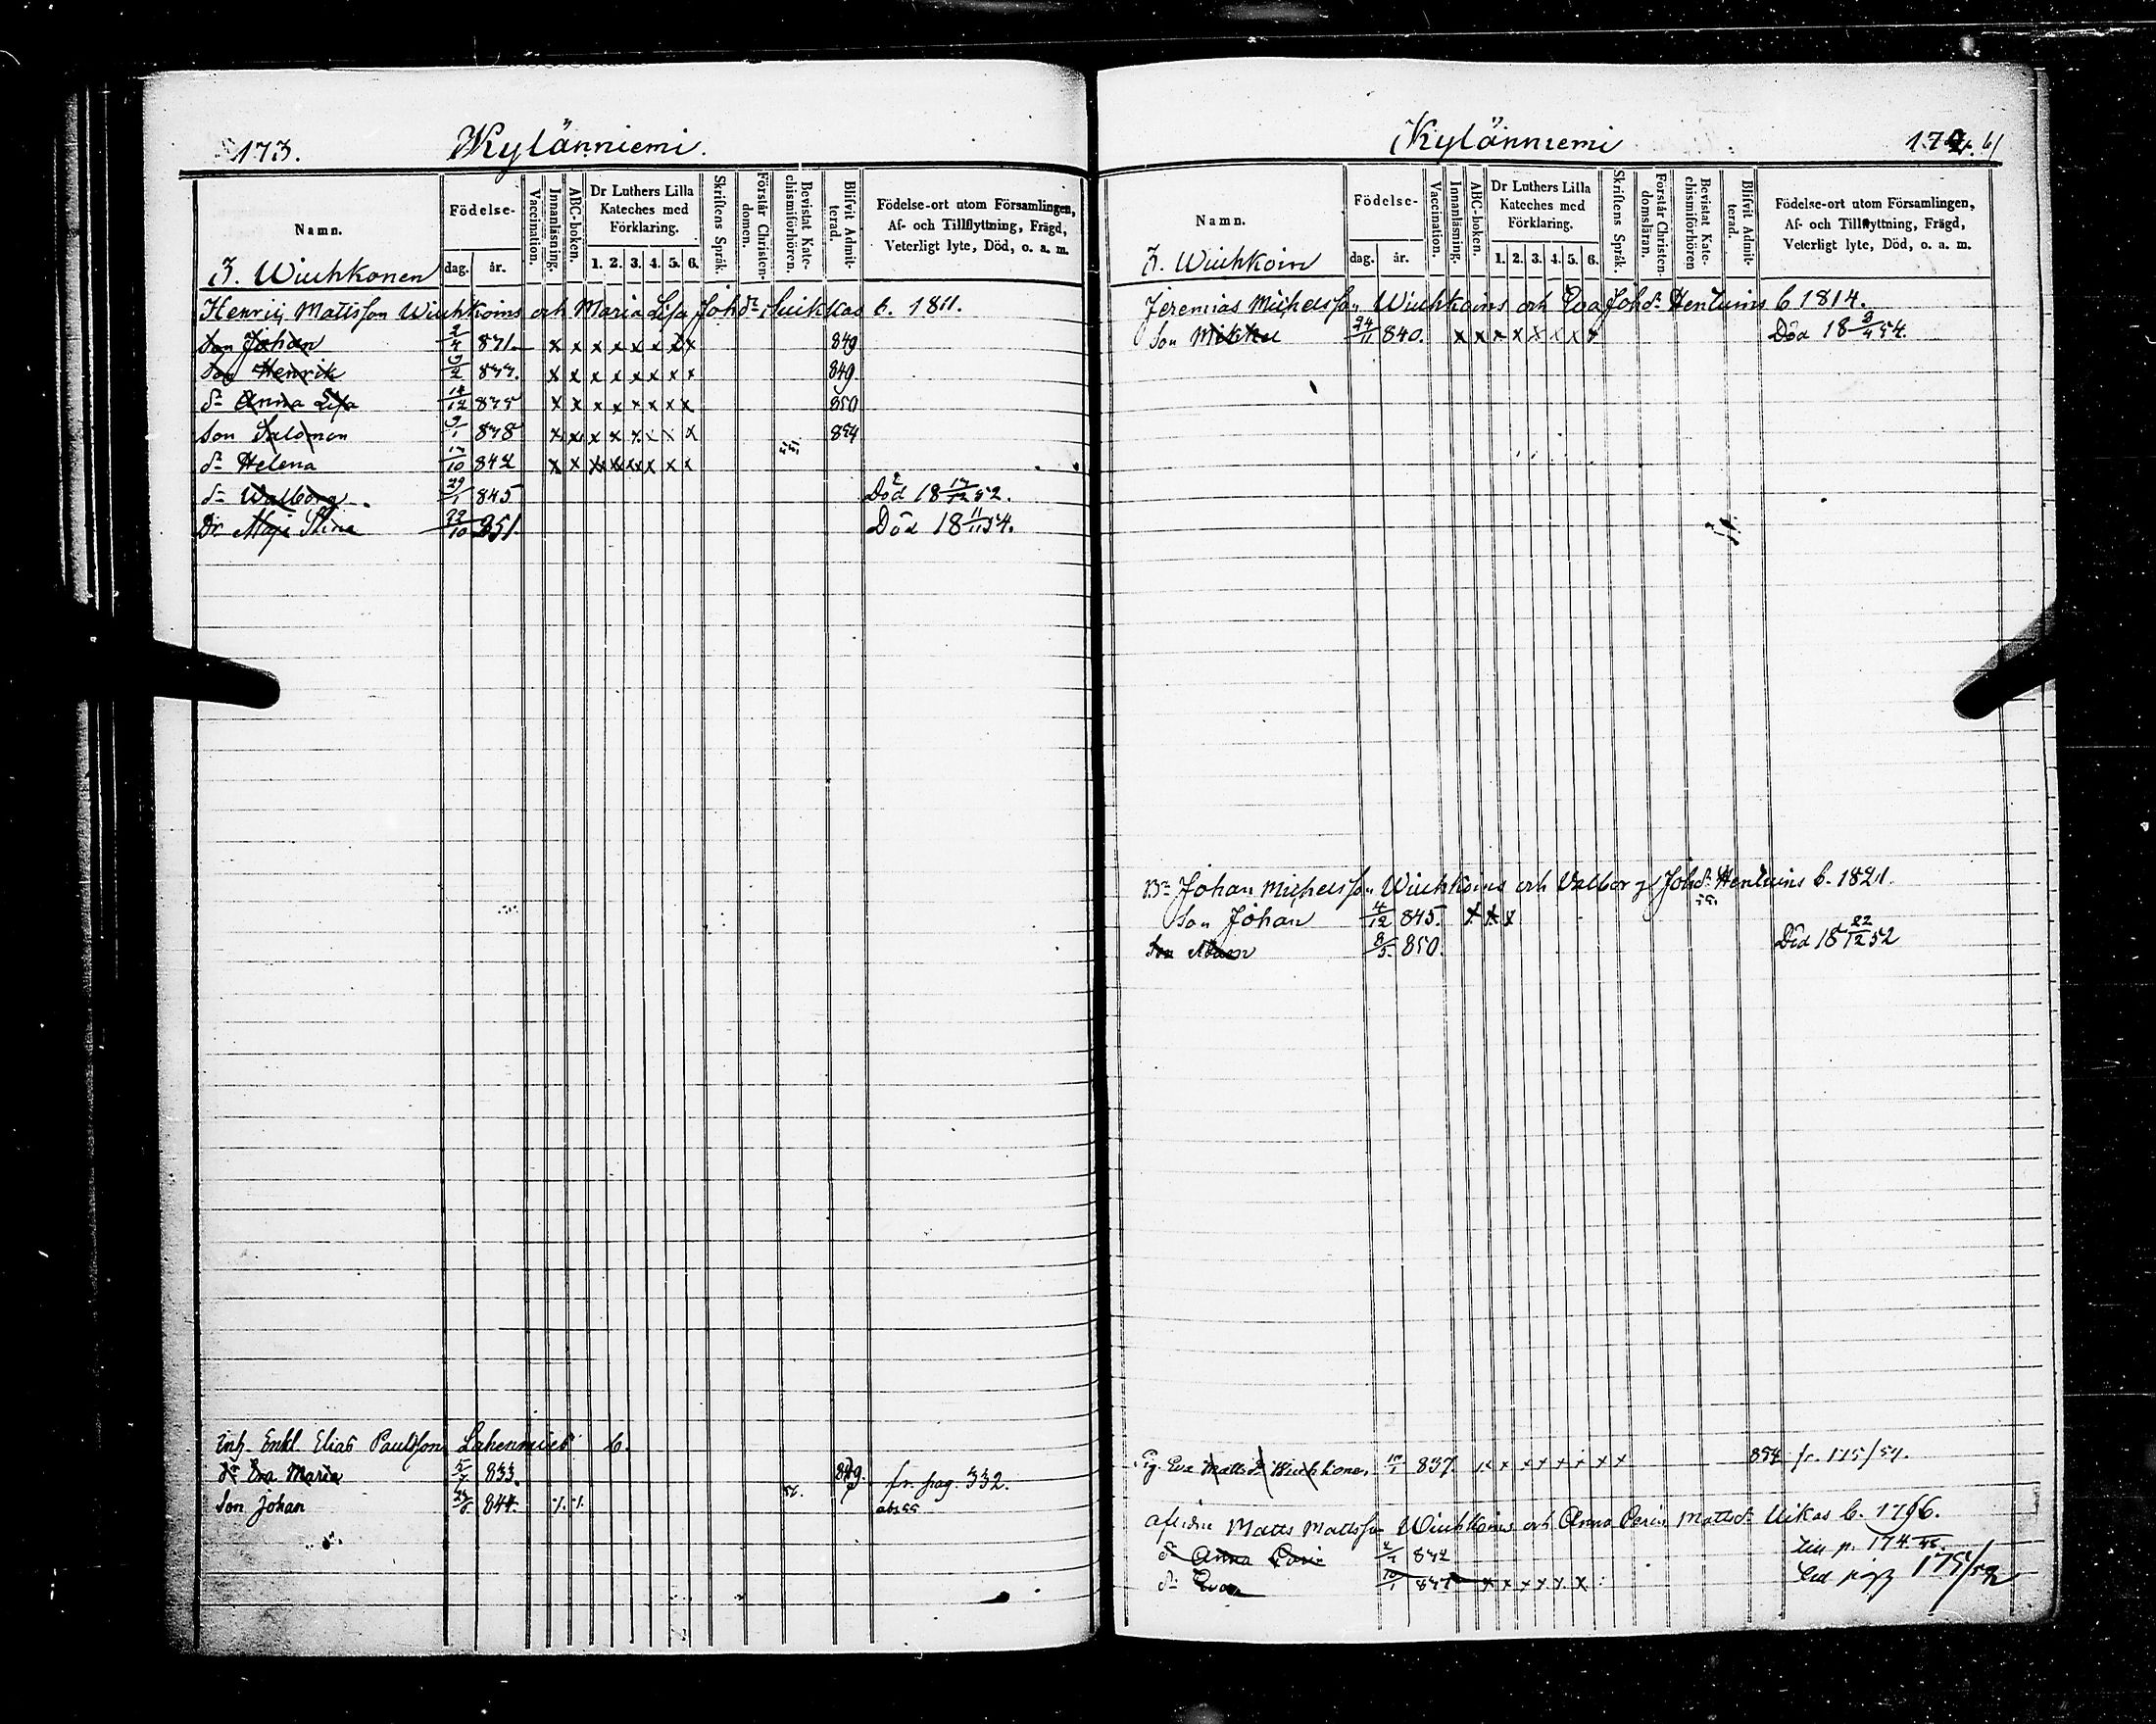 173. Kylänniemi.
Namn.
Födelse-
dag. år.
Vaccination.
Innanläsning.
ABC-boken.
Dr Luthers Lilla Kateches med Förklaring.
1. 2. 3. 4. 5. 6.
Skriftens Språk.
Förstår Christen-domen.
Bevistat Kate-chismiförhören.
Blifvit Admit-terad.
Födelse-ort utom Församlingen,
Af- och Tillflyttning, Frägd,
Veterligt lyte, Död, o. a. m.
3. Wiuhkonen
Henrij Mattsson Wiuhkoins och Maria Lisa Johdr Suikkas b. 1811.
Son Johan 2/4 831 x x x x x x x x 849
Son Henrik 9/2 833. x x x x x x x x 849.
dr Anna Lisa 14/12 835 x x x x x x x x 850
Son Salomon 9/1 838 x x x x x x x x 854
dr Helena 17/10 842 x x x x x x x x
dr Walborg 29/1 845 Död 18 17/12 52.
Dr Maja Stina 22/10 851. Död 18 11/11 54.
Inh. Enkl. Elias Paulsson Lahenmies b.
dr Eva Maria 5/7 833. 849. fr. pag. 332.
Son Johan 844.
Kylänniemi 174.
Namn.
Födelse-
dag. år.
Vaccination.
Innanläsning.
ABC-boken.
Dr Luthers Lilla Kateches med Förklaring.
1. 2. 3. 4. 5. 6.
Skriftens Språk.
Förstår Christen-domsläran.
Bevistat Kate-chismiförhören
Blifvit Admit-terad.
Födelse-ort utom Församlingen,
Af- och Tillflyttning, Frägd,
Veterligt lyte, Död, o. a. m.
3. Wiuhkoin
Jeremias Michelsson Wiuhkoins och Eva Johdr Hentuins b 1814.
Son Mikkel 24/11 840. x x x x x x x x Död 18 3/4 54.
Br Johan Michelsson Wiuhkoins och Valborg Johdr Hentuins b. 1821.
Son Johan 4/12 845. x x x
Son Adam 3/5 850. Död 18 22/12 52
Pig. Eva Mattsdr Wiuhkonen 10/1 837 x x x x x x x x 854 fr. 175/54.
Afledne Matts Mattsson Wiuhkoins och Anna Mattsdr Uikas b.
dr Anna 832 p. 174
dr Eva 10/1 837 x x x x x x 175/52